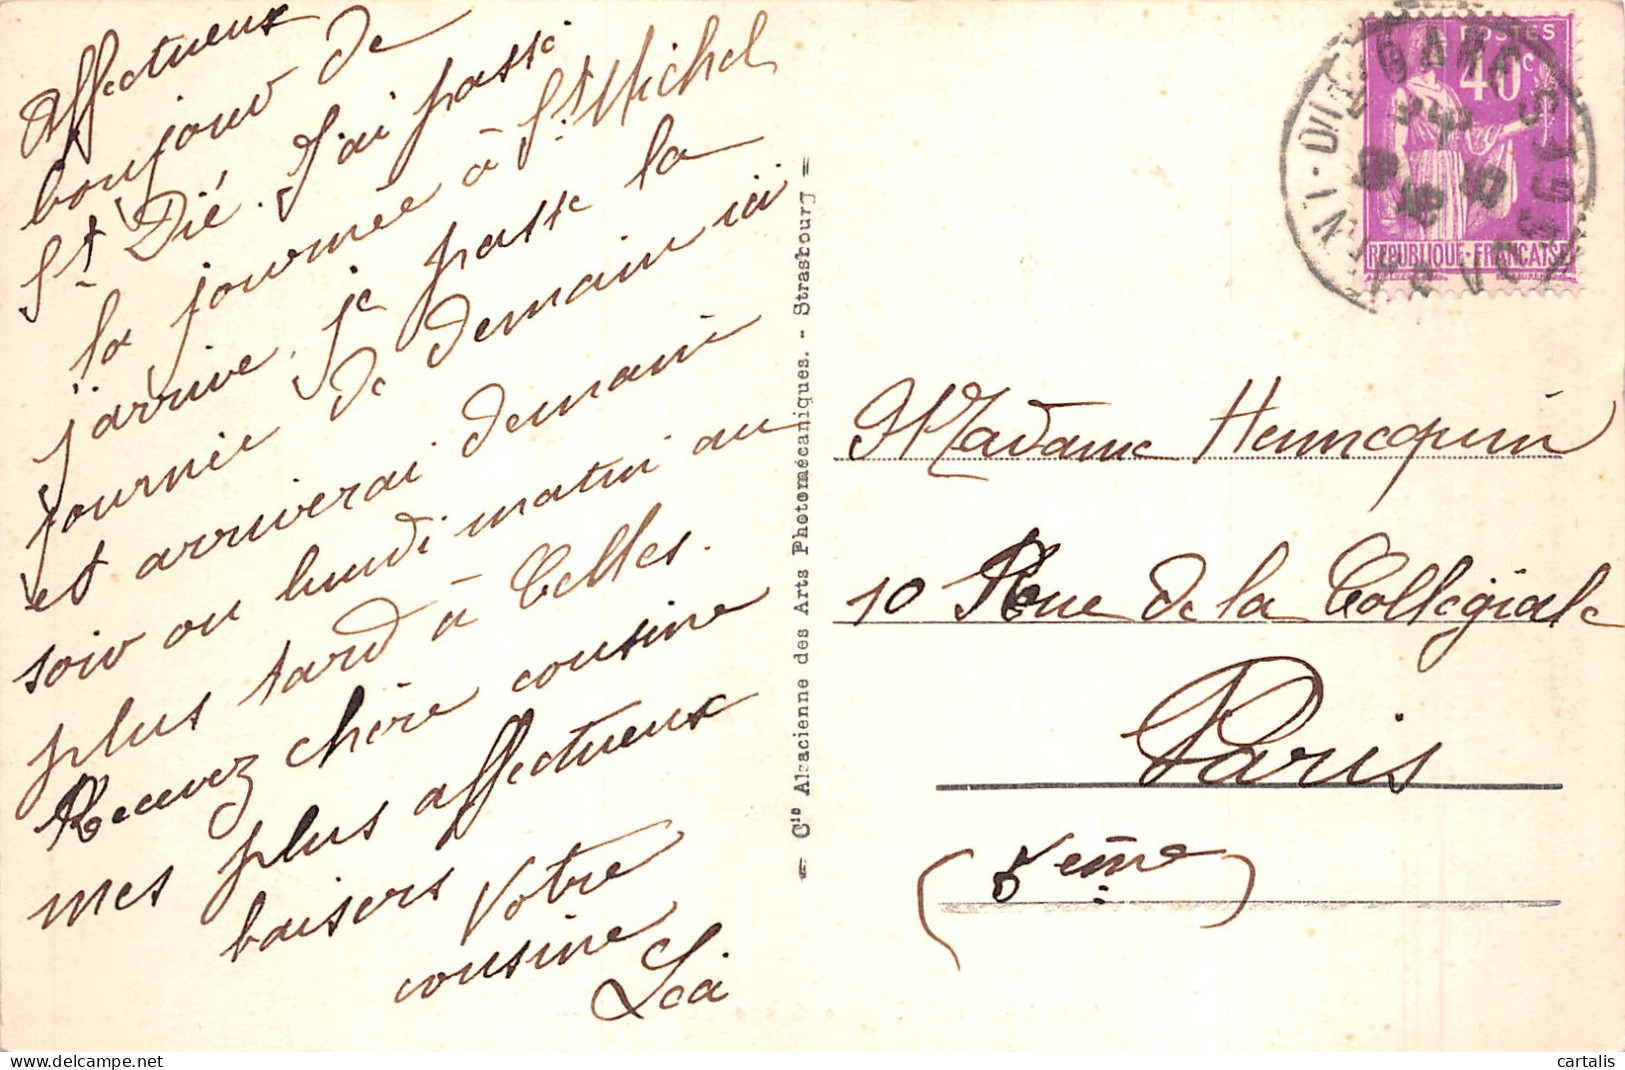 Affectueux
bonjour de
St Dié. J'ai passé
la journée à St. Michel
j'arrive, je passe la
journée de demain ici
et arriverai demain
soir ou lundi matin au
plus tard à Celles.
Recevez chère cousine
mes plus affectueux
baisers
Votre
cousine
Léa
= Cie Alsacienne des Arts Photomécaniques. - Strasbourg =
POSTES
40c
REPUBLIQUE-FRANÇAISE
Madame Hennequin
10 Rue de la Collégiale
Paris
(5ème)
delcampe.net
cartalis